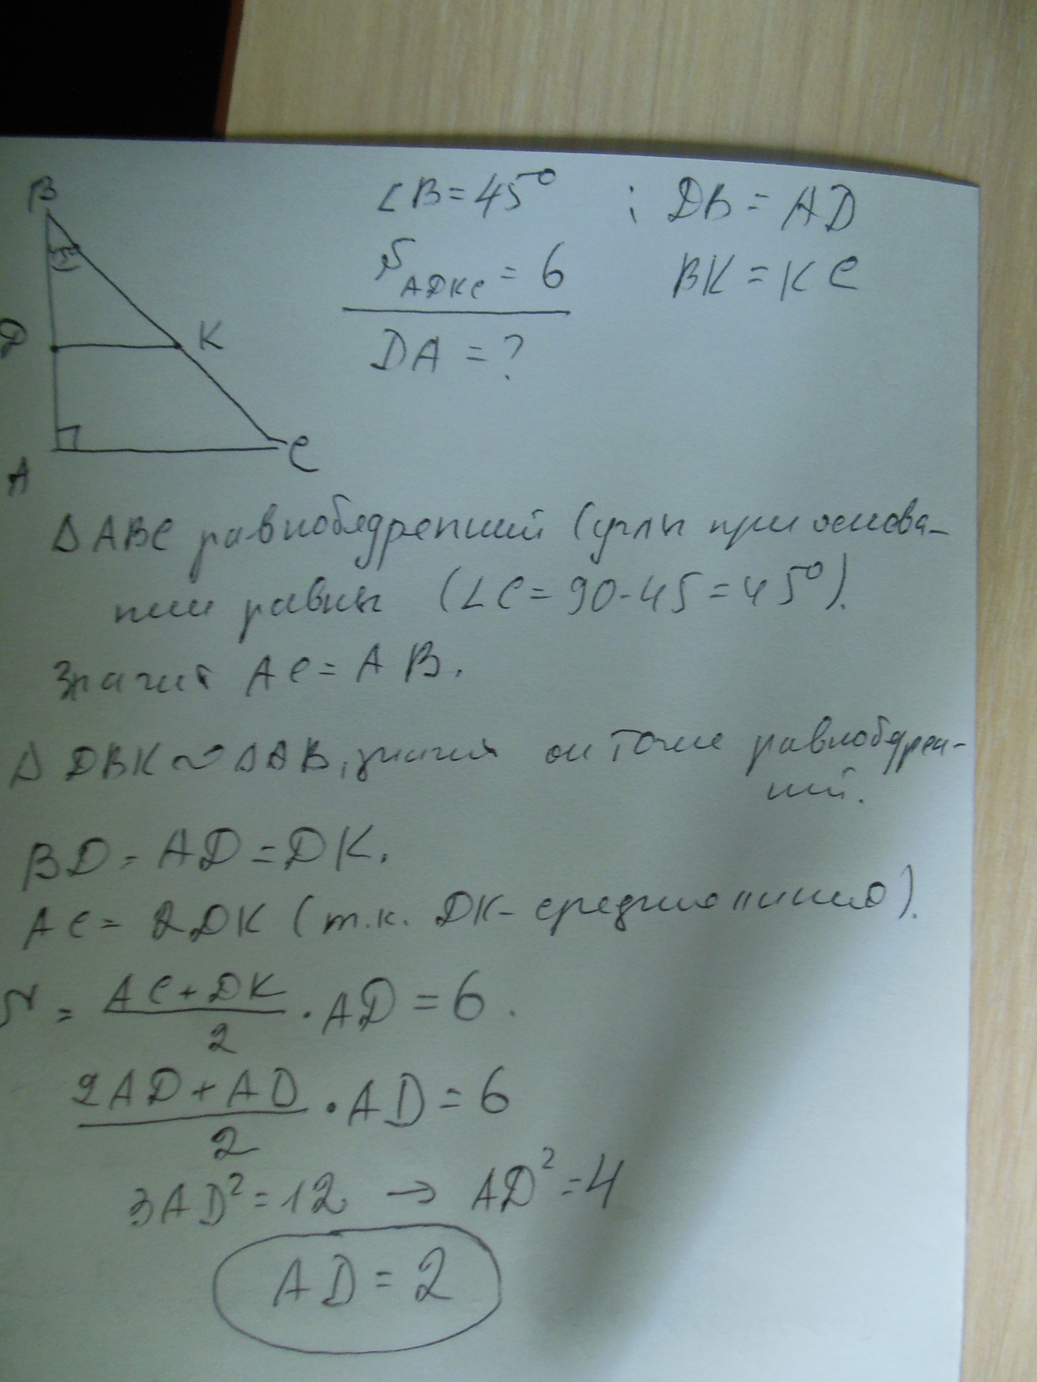 B
45°
D
K
A
C
∠B=45° ; DB=AD
S_ADKC = 6
BK = KC
DA = ?
ΔABC равнобедренный (углы при основа-
нии равны (∠C=90-45=45°).
Значит AC=AB.
Δ DBK ∾ ΔAB, значит он тоже равнобедрен-
ный.
BD=AD=DK.
AC= 2DK (т.к. DK- средняя линия).
S = (AC+DK)/2 · AD = 6.
(2AD+AD)/2 · AD = 6
3AD²=12 → AD²=4
AD=2